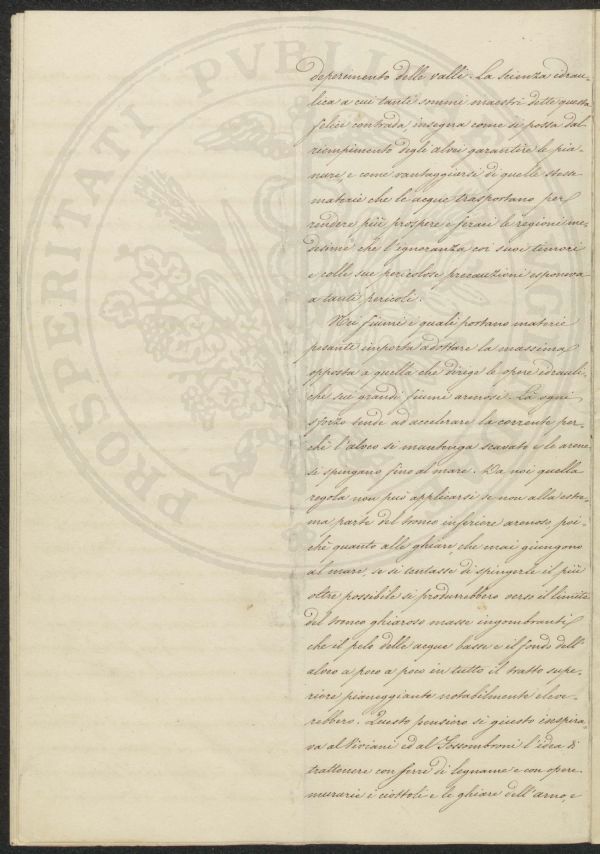 deperimento delle valli. La scienza idrau-
lica a cui tanti sommi maestri dette questa
felice contrada, insegna come si possa dal
riempimento degli alvei garantire le pia-
nure, e come vantaggiarsi di quelle stesse
materie che le acque trasportano per
rendere più prospere e feraci le regioni me-
desime che l'ignoranza coi suoi timori
e colle sue pericolose precauzioni esponeva
a tanti pericoli.
Nei fiumi i quali portano materie
pesanti importa adottare la massima
opposta a quella che dirige le opere idrauli-
che sui grandi fiumi arenosi. Là ogni
sforzo tende ad accelerare la corrente per-
chè l'alveo si mantenga scavato e le arene
si spingano fino al mare. Da noi quella
regola non può applicarsi se non alla estre-
ma parte del tronco inferiore arenoso, poi-
chè quanto alle ghiare, che mai giungono
al mare, se si tentasse di spingerle il più
oltre possibile si produrrebbero verso il limite
del tronco ghiaroso masse ingombranti
che il pelo delle acque basse e il fondo dell'
alveo a poco a poco in tutto il tratto supe-
riore pianeggiante notabilmente eleve-
rebbero. Questo pensiero sì giusto inspira-
va al Viviani ed al Fossombroni l'idea di
trattenere con serre di legname e con opere
murarie i ciottoli e le ghiare dell'arno, e
PROSPERITATI PVBLIC